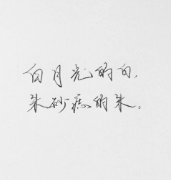 白月光的白,
朱砂痣的朱。